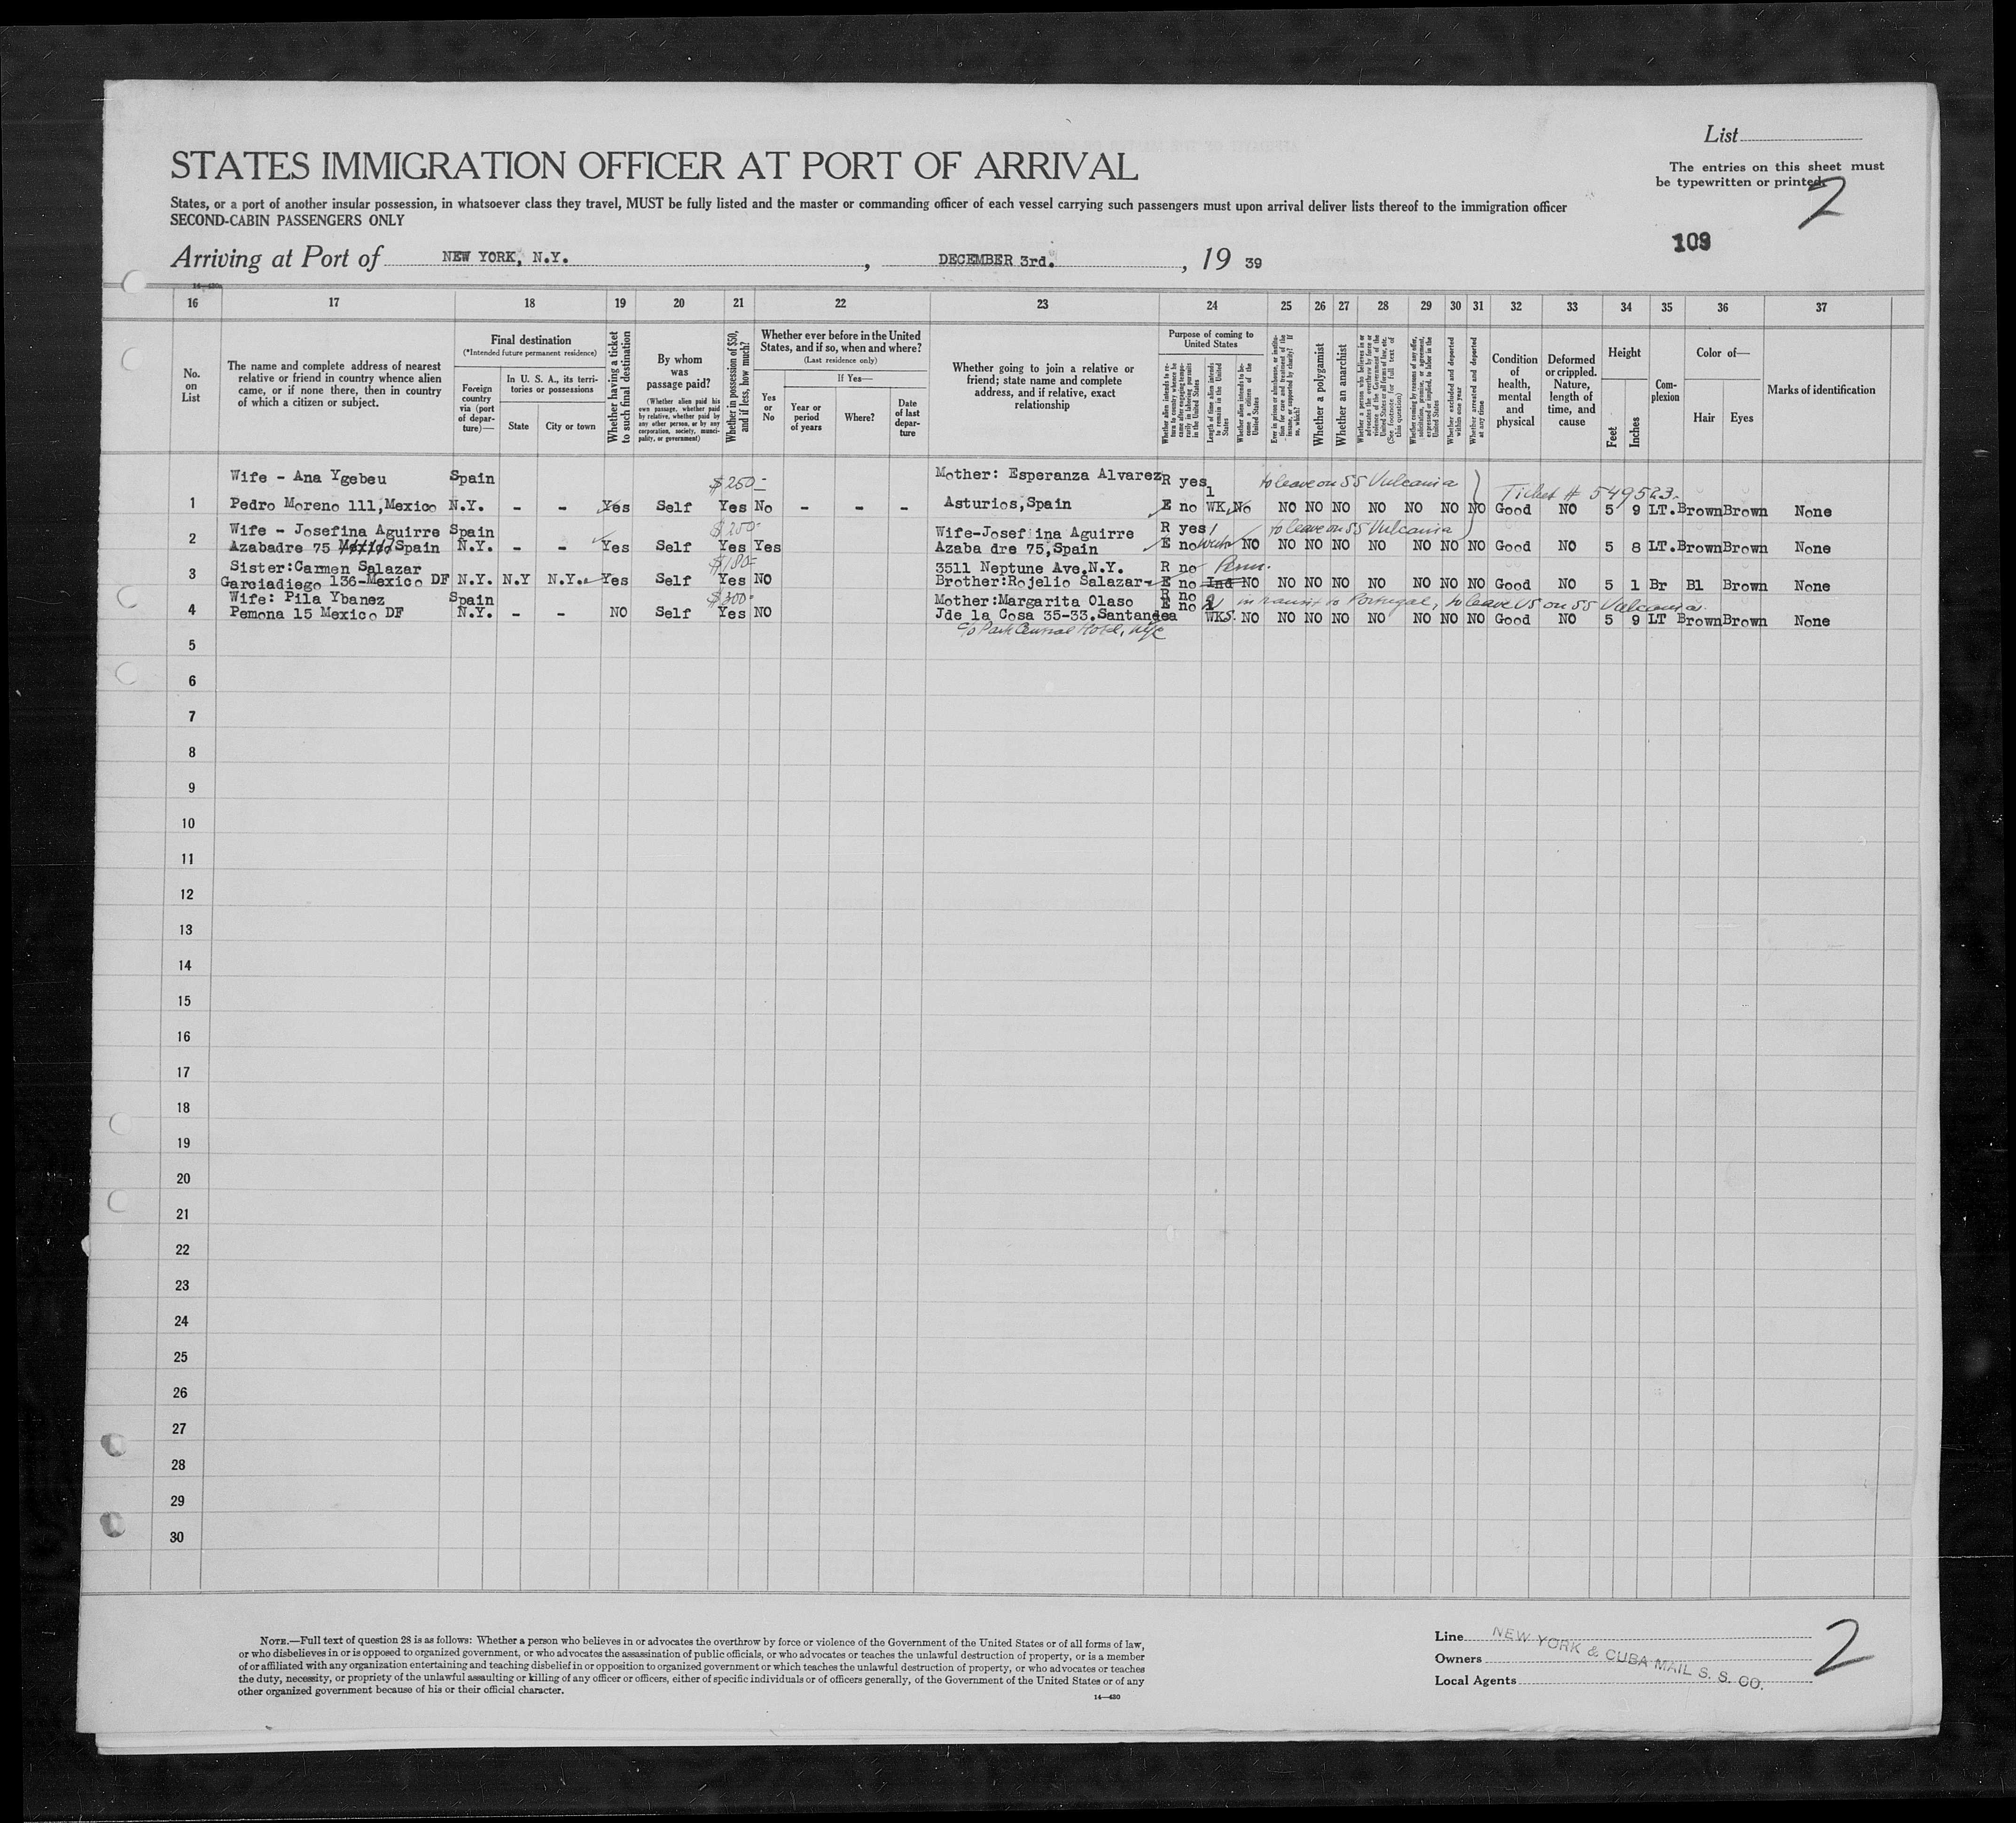 List
The entries on this sheet must
be typewritten or printed.
2
109
STATES IMMIGRATION OFFICER AT PORT OF ARRIVAL
States, or a port of another insular possession, in whatsoever class they travel, MUST be fully listed and the master or commanding officer of each vessel carrying such passengers must upon arrival deliver lists thereof to the immigration officer
SECOND-CABIN PASSENGERS ONLY
Arriving at Port of NEW YORK, N.Y. , DECEMBER 3rd. , 19 39
14—430
16 17 18 19 20 21 22 23 24 25 26 27 28 29 30 31 32 33 34 35 36 37
No. on List
The name and complete address of nearest
relative or friend in country whence alien
came, or if none there, then in country
of which a citizen or subject.
Final destination
(*Intended future permanent residence)
Foreign country via (port of departure)—
In U. S. A., its territories or possessions
State
City or town
Whether having a ticket to such final destination
By whom was passage paid?
(Whether alien paid his own passage, whether paid by relative, whether paid by any other person, or by any corporation, society, municipality, or government)
Whether in possession of $50, and if less, how much?
Whether ever before in the United States, and if so, when and where?
(Last residence only)
Yes or No
If Yes—
Year or period of years
Where?
Date of last departure
Whether going to join a relative or
friend; state name and complete
address, and if relative, exact
relationship
Purpose of coming to United States
Whether alien intends to return to country whence he came after engaging temporarily in laboring pursuits in the United States
Length of time alien intends to remain in the United States
Whether alien intends to become a citizen of the United States
Ever in prison or almshouse, or institution for care and treatment of the insane, or supported by charity? If so, which?
Whether a polygamist
Whether an anarchist
Whether a person who believes in or advocates the overthrow by force or violence of the Government of the United States or all forms of law, etc. (See footnote for full text of this question)
Whether coming by reasons of any offer, solicitation, promise, or agreement, expressed or implied, to labor in the United States
Whether excluded and deported within one year
Whether arrested and deported at any time
Condition of health, mental and physical
Deformed or crippled. Nature, length of time, and cause
Height
Feet
Inches
Complexion
Color of—
Hair
Eyes
Marks of identification
Wife - Ana Ygebeu Spain $250- Mother: Esperanza Alvarez R yes 1 to leave on SS Vulcania Ticket # 549523
1 Pedro Moreno 111, Mexico N.Y. - - Yes Self Yes No - - - Asturios, Spain E no WK. No NO NO NO NO NO NO NO Good NO 5 9 LT. Brown Brown None
Wife - Josefina Aguirre Spain $250- Wife-Josefina Aguirre R yes 1 to leave on SS Vulcania
2 Azabadre 75 Spain N.Y. - - Yes Self Yes Yes Azaba dre 75, Spain E no week NO NO NO NO NO NO NO NO Good NO 5 8 LT. Brown Brown None
Sister: Carmen Salazar $180- 3511 Neptune Ave. N.Y. R no Perm.
3 Garciadiego 136-Mexico DF N.Y. N.Y N.Y. Yes Self Yes NO Brother: Rojelio Salazar- E no Ind NO NO NO NO NO NO NO NO Good NO 5 1 Br Bl Brown None
Wife: Pila Ybanez Spain $300- Mother: Margarita Olaso R no E no 2 in transit to Portugal, to leave US on SS Vulcania.
4 Pemona 15 Mexico DF N.Y. - - NO Self Yes NO Jde la Cosa 35-33. Santandea WKS. NO NO NO NO NO NO NO NO Good NO 5 9 LT Brown Brown None
c/o Park Central Hotel, NYC
5
6
7
8
9
10
11
12
13
14
15
16
17
18
19
20
21
22
23
24
25
26
27
28
29
30
NOTE.—Full text of question 28 is as follows: Whether a person who believes in or advocates the overthrow by force or violence of the Government of the United States or of all forms of law,
or who disbelieves in or is opposed to organized government, or who advocates the assassination of public officials, or who advocates or teaches the unlawful destruction of property, or is a member
of or affiliated with any organization entertaining and teaching disbelief in or opposition to organized government or which teaches the unlawful destruction of property, or who advocates or teaches
the duty, necessity, or propriety of the unlawful assaulting or killing of any officer or officers, either of specific individuals or of officers generally, of the Government of the United States or of any
other organized government because of his or their official character.
14—430
Line
Owners
Local Agents
NEW YORK & CUBA MAIL S. S. CO.
2